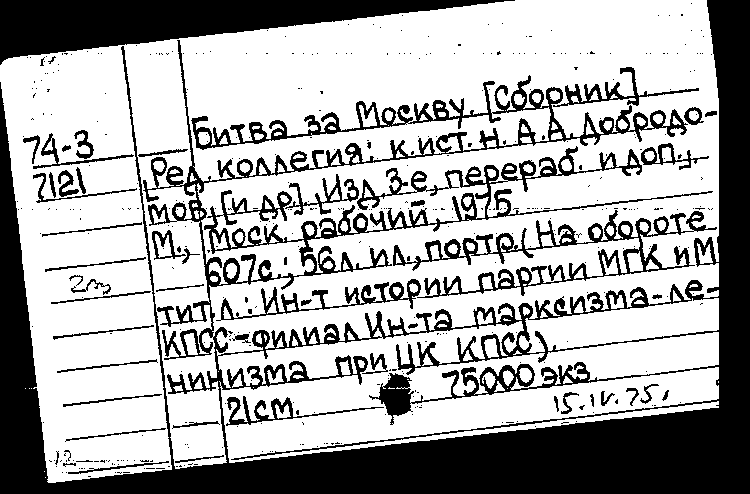 Битва за Москву. [Сборник].
74-3
7121
Ред. коллегия: к.ист.н. А.А. Добродо-
мов, [и др]., Изд. 3-е, перераб. и доп.,
М., Моск. рабочий, 1975.
607с.; 56л. ил., портр. (На обороте
тит. л.: Ин-т истории партии МГК и М
КПСС-филиал Ин-та марксизма-ле-
нинизма при ЦК КПСС).
75000 экз.
21см.
15.IV.75,
12